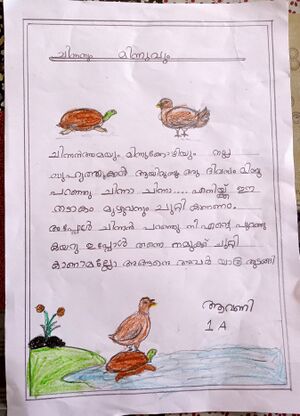 ചിന്നനും മിന്നുവും
ചിന്നൻആമയും മിന്നുക്കോഴിയും നല്ല
സുഹൃത്തുക്കൾ ആയിരുന്നു ഒരു ദിവസം മിന്നു
പറഞ്ഞു ചിന്നാ ചിന്നാ.... എനിയ്ക്ക് ഈ
തടാകം മുഴുവനും ചുറ്റി കാണണം.
അപ്പോൾ ചിന്നൻ പറഞ്ഞു നീ എന്റെ പുറത്തു
കയറൂ ഇപ്പോൾ തന്നെ നമുക്ക് ചുറ്റി
കാണാമല്ലോ അങ്ങനെ അവർ യാത്ര തുടങ്ങി
ആവണി
1 A